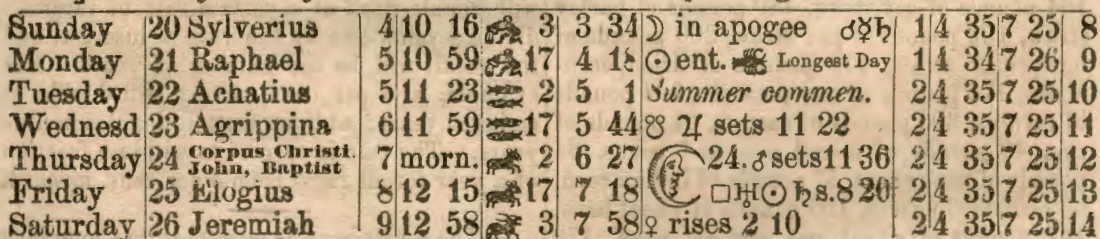 Sunday 20 Sylverius 4 10 16 3 3 34 ☽ in apogee ☌☿♄ 1 4 35 7 25 8
Monday 21 Raphael 5 10 59 17 4 18 ☉ ent. Longest Day 1 4 34 7 26 9
Tuesday 22 Achatius 5 11 23 2 5 1 Summer commen. 2 4 35 7 25 10
Wednesd 23 Agrippina 6 11 59 17 5 44 ☋ ♃ sets 11 22 2 4 35 7 25 11
Thursday 24 Corpus Christi. John, Baptist 7 morn. 2 6 27 24. ♂ sets 11 36 2 4 35 7 25 12
Friday 25 Elogius 8 12 15 17 7 18 □♅☉ ♄ s. 8 20 2 4 35 7 25 13
Saturday 26 Jeremiah 9 12 58 3 7 58 ♀ rises 2 10 2 4 35 7 25 14